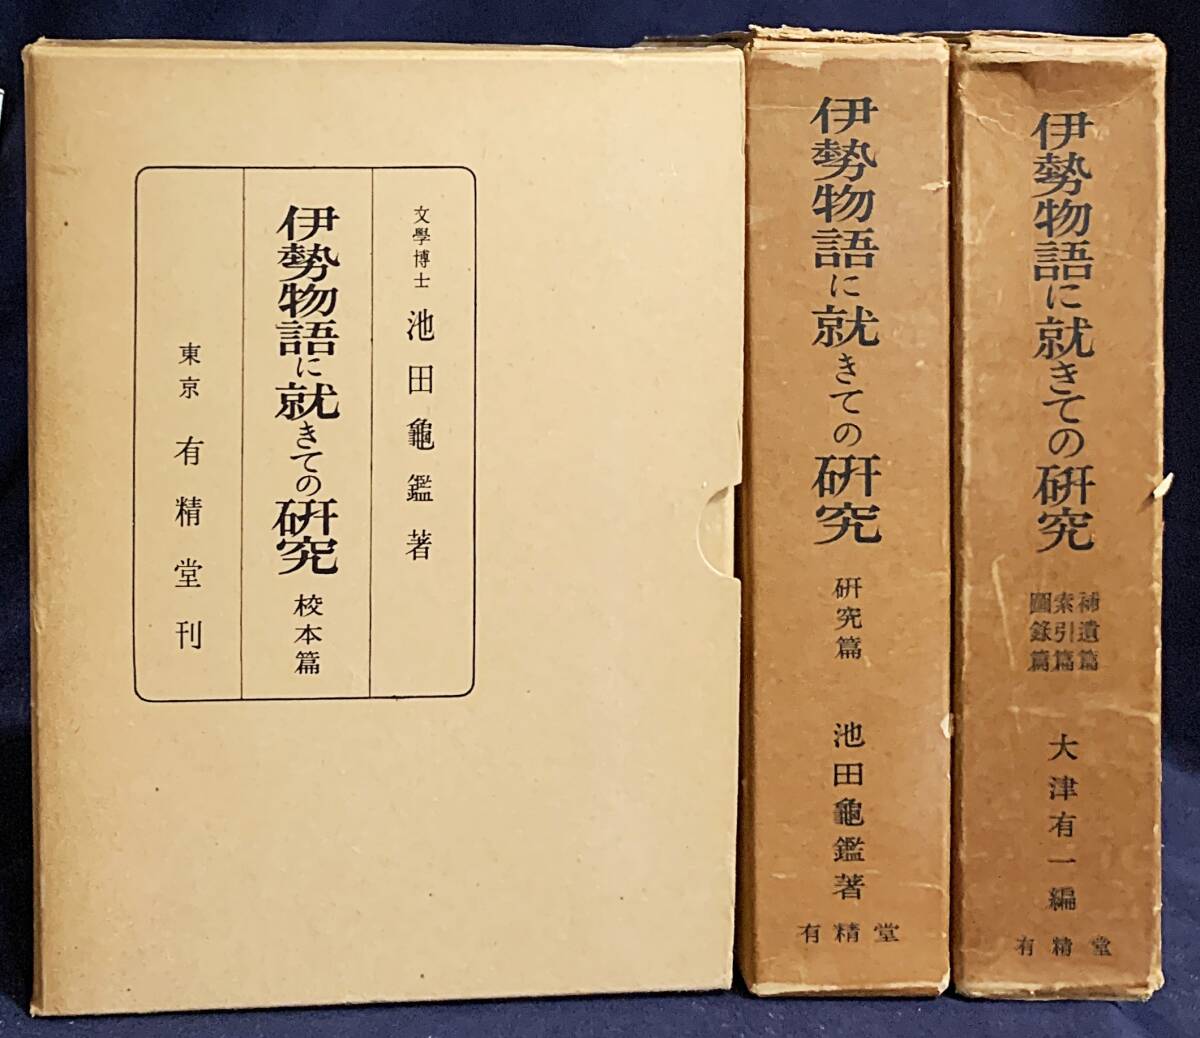 文學博士 池田龜鑑著
伊勢物語に就きての硏究 校本篇
東京 有精堂刊
伊勢物語に就きての硏究
硏究篇
池田龜鑑著
有精堂
伊勢物語に就きての硏究
補遺篇
索引篇
圖錄篇
大津有一編
有精堂